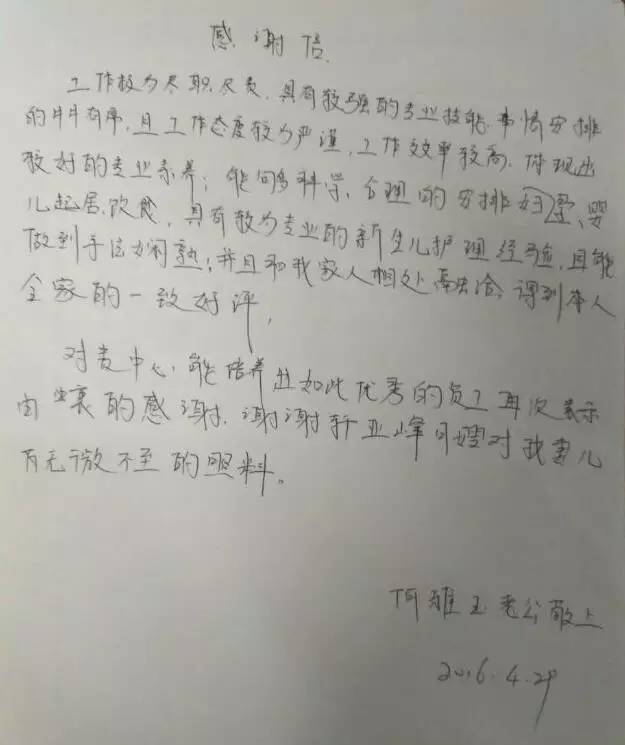 感谢信
工作较为尽职尽责,具有较强的专业技能,事情安排
的井井有序,且工作态度较为严谨,工作效率较高,体现出
较好的专业素养;能够科学、合理的安排妇婴、婴
儿起居、饮食,具有较为专业的新生儿护理经验,且能
做到手法娴熟;并且和我家人相处融洽,得到本人
全家的一致好评,
对贵中心,能培养出如此优秀的员工再次表示
由衷的感谢,谢谢靳亚峰月嫂对我妻儿
有无微不至的照料。
何雅玉老公敬上
2016.4.29